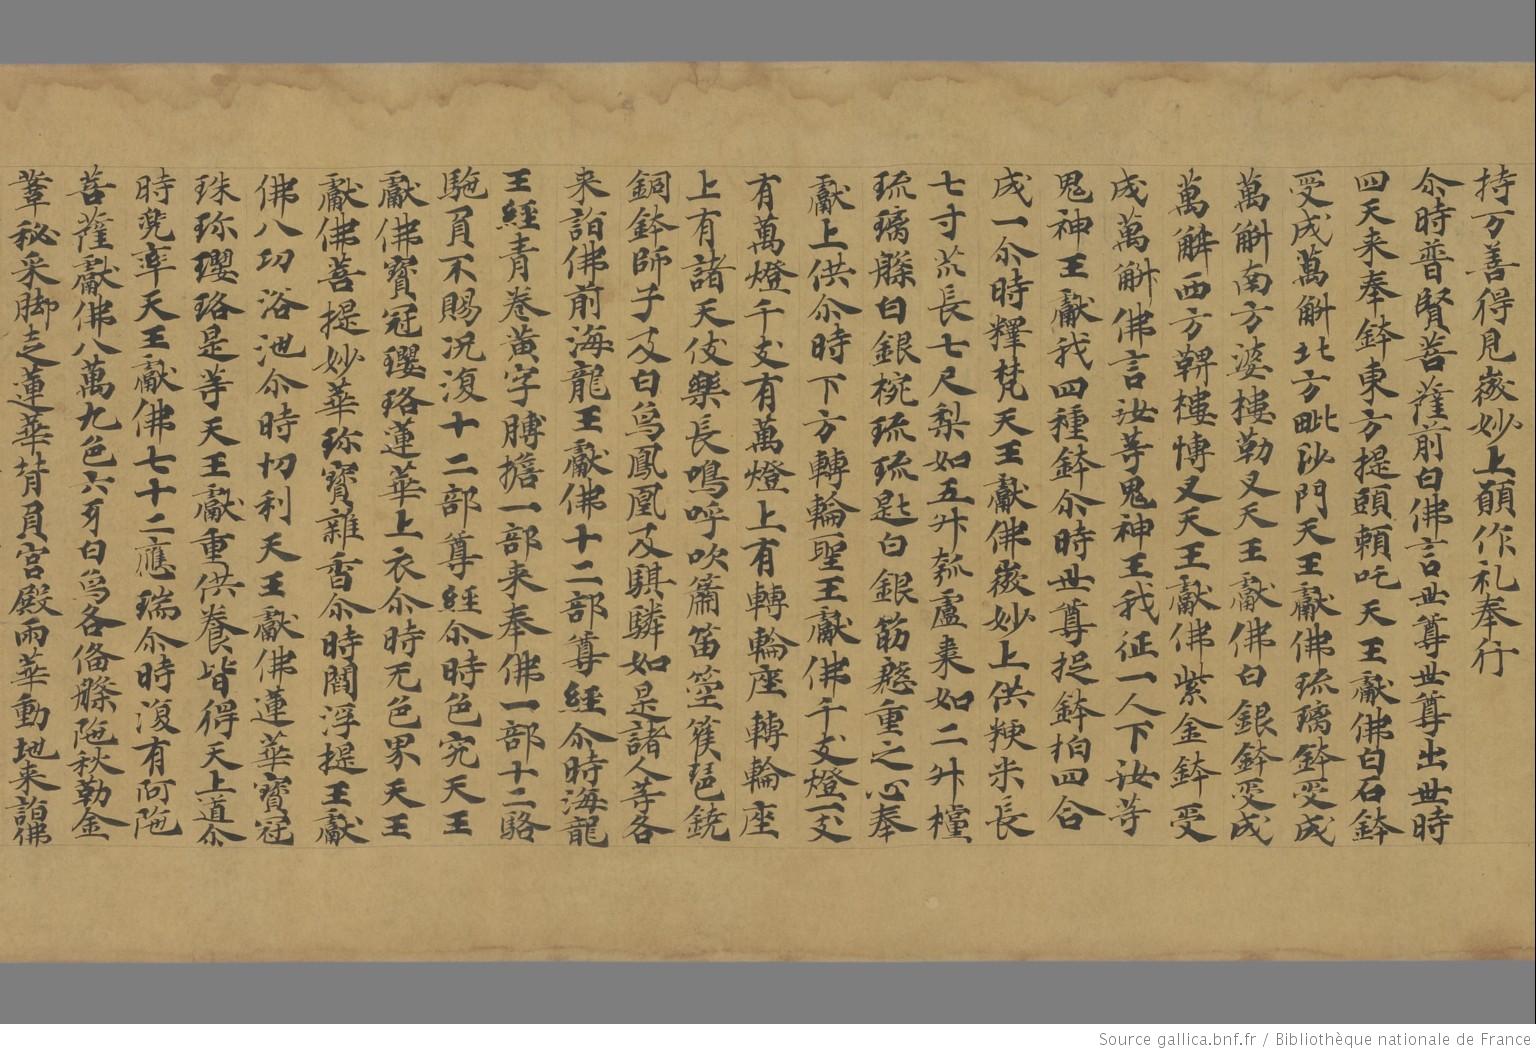 持万善得見微妙上願作礼奉行
尒時普賢菩薩前白佛言世尊世尊出世時
四天来奉鉢東方提頭頼吒天王獻佛白石鉢
受成萬斛北方毗沙門天王獻佛琉璃鉢受成
萬斛南方婆樓勒叉天王獻佛白銀鉢受成
萬斛西方鞞樓博叉天王獻佛紫金鉢受
成萬斛佛言汝等鬼神王我征一人下汝等
鬼神王獻我四種鉢尒時世尊捉鉢拍四合
成一尒時釋梵天王獻佛微妙上供粳米長
七寸苽長七尺梨如五升瓠盧棗如二升
琉璃槃白銀椀琉琉匙白銀筋慇重之心奉
獻上供尒時下方轉輪聖王獻佛千支燈一支
有萬燈千支有萬燈上有轉輪座轉輪座
上有諸天伎樂長鳴呼吹簫笛箜篌琵銃
銅鉢師子及白鳥鳳凰及騏驎如是諸人等各
来詣佛前海龍王獻佛十二部尊經尒時海龍
王經青卷黄字膊擔一部来奉佛一部十二駱
駞負不賜况復十二部尊經尒時色究天王
獻佛寶冠瓔珞蓮華上衣尒時无色界天王
獻佛菩提妙華珎寶雜香尒時閻浮提王獻
佛八功浴池尒時忉利天王獻佛蓮華寶冠
珠珎瓔珞是等天王獻重供養皆得天上道尒
時兜率天王獻佛七十二應瑞尒時復有阿陁
菩薩獻佛八萬九色六牙白爲各俻槃陁秋勒金
鞌秘采脚走蓮華背負宫殿雨華動地来詣佛